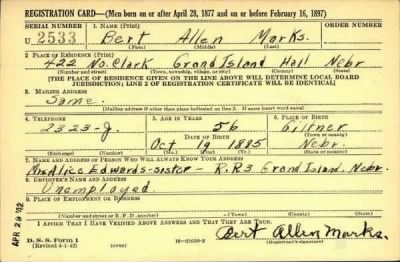 REGISTRATION CARD—(Men born on or after April 28, 1877 and on or before February 16, 1897)
SERIAL NUMBER 1. NAME (Print) ORDER NUMBER
U 2533 Bert Allen Marks.
(First) (Middle) (Last)
2. PLACE OF RESIDENCE (Print)
422 No. Clark Grand Island Hall Nebr
(Number and street) (Town, township, village, or city) (County) (State)
[THE PLACE OF RESIDENCE GIVEN ON THE LINE ABOVE WILL DETERMINE LOCAL BOARD
JURISDICTION; LINE 2 OF REGISTRATION CERTIFICATE WILL BE IDENTICAL]
3. MAILING ADDRESS
Same.
[Mailing address if other than place indicated on line 2. If same insert word same]
4. TELEPHONE 5. AGE IN YEARS 6. PLACE OF BIRTH
2323-J. 56 Giltner
DATE OF BIRTH (Town or county)
Oct 19 1885 Nebr.
(Exchange) (Number) (Mo.) (Day) (Yr.) (State or country)
7. NAME AND ADDRESS OF PERSON WHO WILL ALWAYS KNOW YOUR ADDRESS
Mrs Alice Edwards-sister - R.R3 Grand Island, Nebr.
8. EMPLOYER'S NAME AND ADDRESS
Unemployed.
9. PLACE OF EMPLOYMENT OR BUSINESS
(Number and street or R. F. D. number) (Town) (County) (State)
I AFFIRM THAT I HAVE VERIFIED ABOVE ANSWERS AND THAT THEY ARE TRUE.
APR 29 '42
D. S. S. Form 1
(Revised 4-1-42) (over) Bert Allen Marks.
(Registrant's signature)